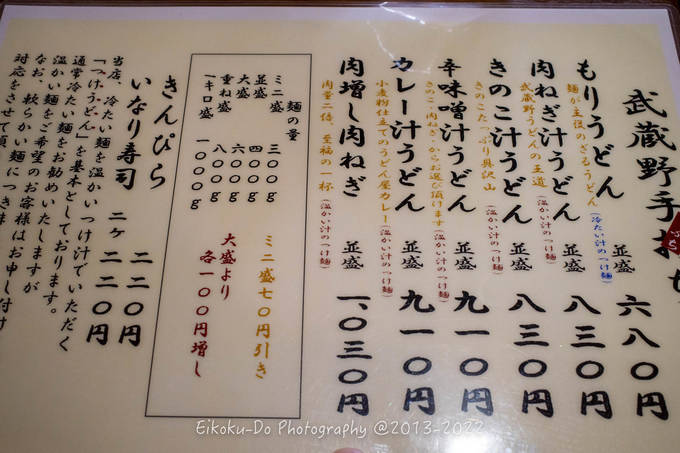 武蔵野手打
もりうどん 並盛 六八〇円
麺が主役のざるうどん(冷たい汁のつけ麺)
肉ねぎ汁うどん 並盛 八三〇円
武蔵野うどんの王道(温かい汁のつけ麺)
きのこ汁うどん 並盛 八三〇円
きのこたっぷり具沢山(温かい汁のつけ麺)
辛味噌汁うどん 並盛 九一〇円
きのこ・肉ねぎ・からお選び頂けます(温かい汁のつけ麺)
カレー汁うどん 並盛 九一〇円
小麦粉仕立てのうどん屋カレー(温かい汁のつけ麺)
肉増し肉ねぎ 並盛 一、〇三〇円
肉量二倍、至福の一杯(温かい汁のつけ麺)
麺の量
ミニ盛 三〇〇g
並盛 四〇〇g
大盛 六〇〇g
重ね盛 八〇〇g
一キロ盛 一〇〇〇g
ミニ盛七〇円引き
大盛より
各一〇〇円増し
きんぴら 二二〇円
いなり寿司 二ケ 二二〇円
当店、冷たい麺を温かいつけ汁でいただく
「つけうどん」を基本としております。
通常冷たい麺をお勧めいたしますが
温かい麺をご希望のお客様はお申し付け
なお、軟らかい麺につきま
対応をさせて頂
Eikoku-Do Photography @2013-2022